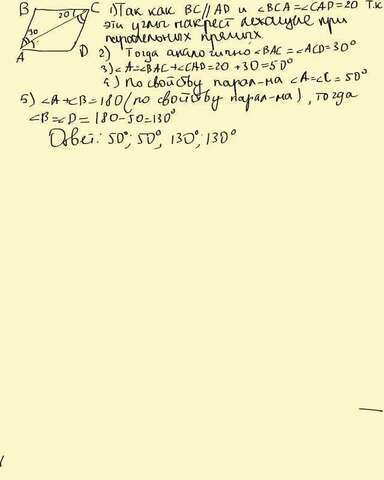 B C 20 30 1 A D
1) Так как BC || AD и ∠BCA=∠CAD=20 т.к
эти углы накрест лежащие при
паралельных прямых
2) Тогда аналогично ∠BAC = ∠ACD=30°
3) ∠A=∠BAC+∠CAD=20+30=50°
4) По свойству парал-ма ∠A=∠C=50°
5) ∠A+∠B=180 (по свойству парал-ма), тогда
∠B=∠D=180-50=130°
Ответ: 50°; 50°, 130°; 130°